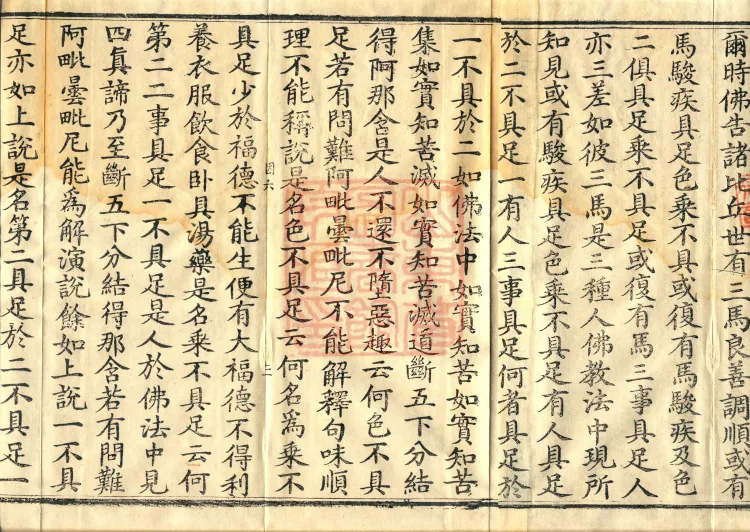 爾時佛告諸比丘世有三馬良善調順或有
馬駿疾具足色乘不具或復有馬駿疾及色
二俱具足乘不具足或復有馬三事具足人
亦三差如彼三馬是三種人佛教法中現所
知見或有駿疾具足色乘不具足有人具足
於二不具足一有人三事具足何者具足於
一不具於二如佛法中如實知苦如實知苦
集如實知苦滅如實知苦滅道斷五下分結
得阿那含是人不還不墮惡趣云何色不具
足若有問難阿毗曇毗尼不能解釋句味順
理不能稱說是名色不具足云何名爲乘不
六
上
具足少於福德不能生便有大福德不得利
養衣服飲食卧具湯藥是名乘不具足云何
第二二事具足一不具足是人於佛法中見
四眞諦乃至斷五下分結得那含若有問難
阿毗曇毗尼能爲解演說餘如上說一不具
足亦如上說是名第二具足於二不具足一